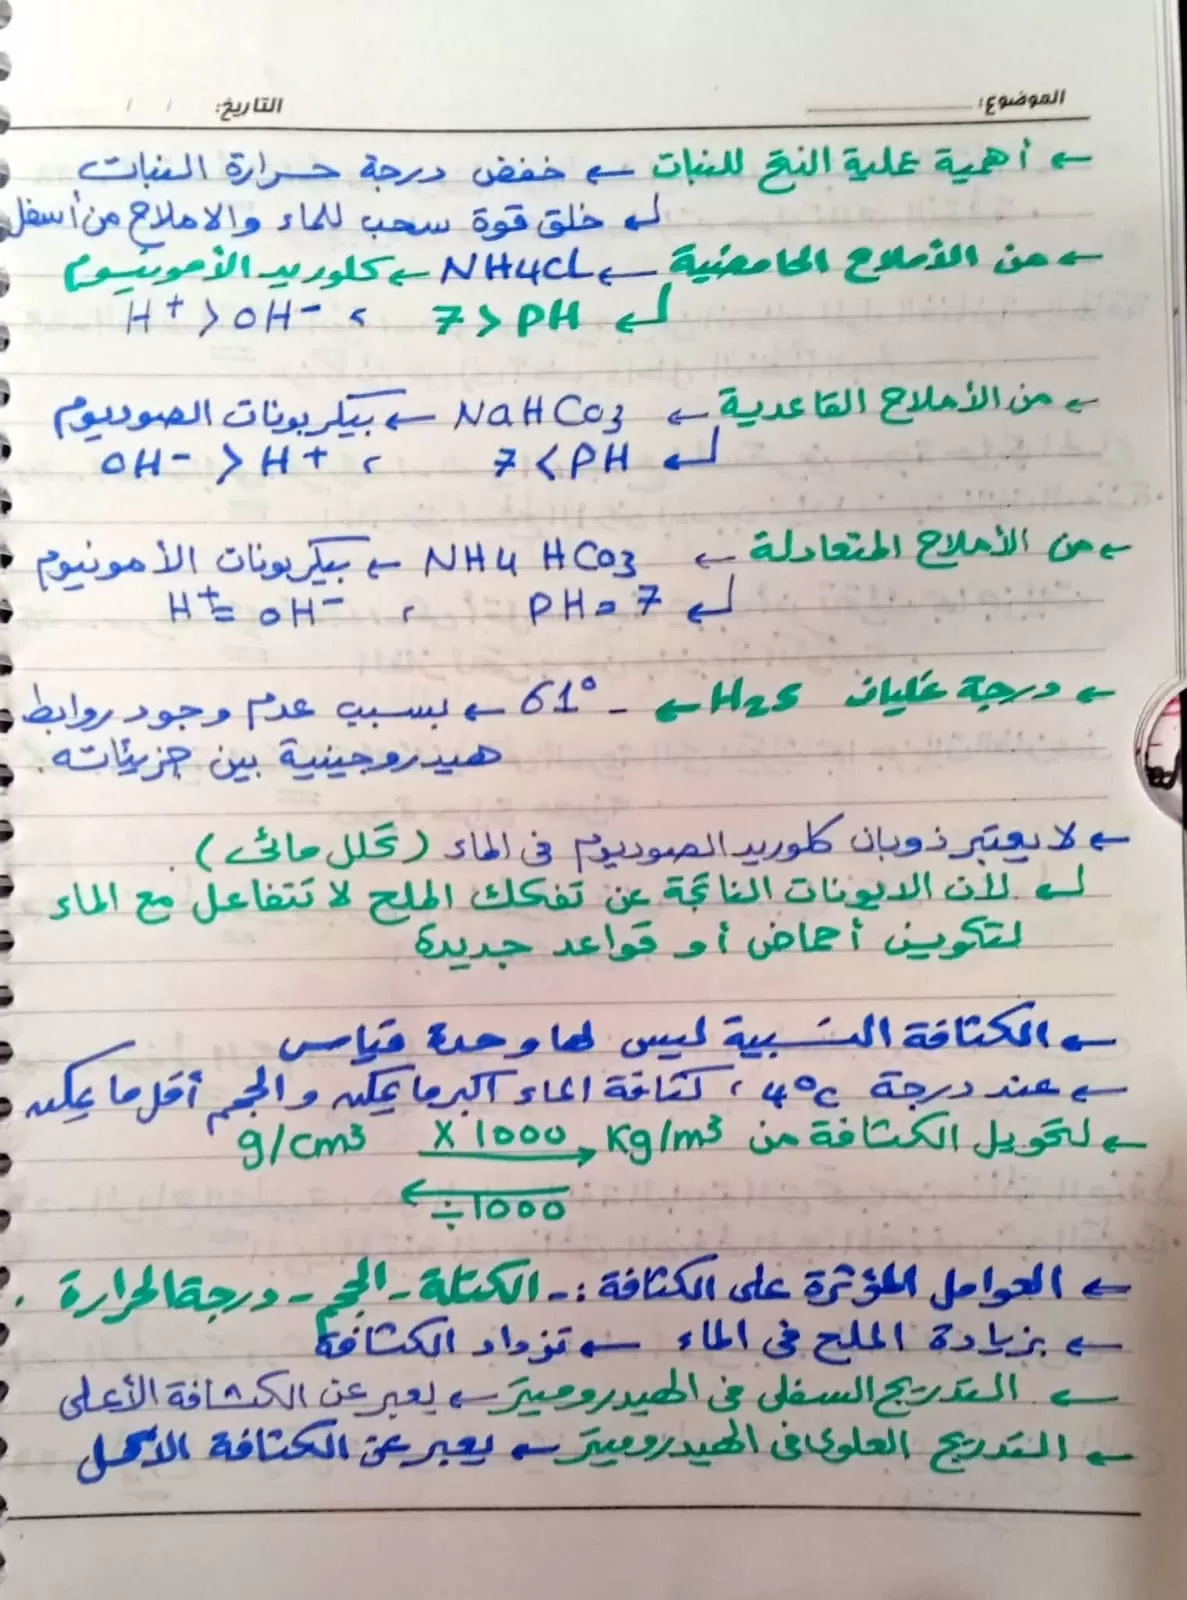 الموضوع: التاريخ: / /
← أهمية عملية النتح للنبات ← خفض درجة حرارة النبات
↲ خلق قوة سحب للماء والاملاح من أسفل
← من الأملاح الحامضية ← NH4CL ← كلوريد الأمونيوم
↲ 7 > PH ، H+ > OH-
← من الأملاح القاعدية ← NaHCO3 ← بيكربونات الصوديوم
↲ 7 < PH ، OH- > H+
← من الأملاح المتعادلة ← NH4 HCO3 ← بيكربونات الأمونيوم
↲ PH = 7 ، H+ = OH-
← درجة غليان H2S ← - 61° ← بسبب عدم وجود روابط
هيدروجينية بين جزيئاته.
← لا يعتبر ذوبان كلوريد الصوديوم فى الماء (تحلل مائى).
↲ لأن الايونات الناتجة عن تفكك الملح لا تتفاعل مع الماء
لتكوين أحماض أو قواعد جديدة
← الكثافة النسبية ليس لها وحدة قياس
← عند درجة 4°c ، كثافة الماء اكبر ما يمكن والحجم أقل ما يمكن
← لتحويل الكثافة من g/cm3 X 1000 → Kg/m3
← ÷1000
← العوامل المؤثرة على الكثافة :- الكتلة - الحجم - درجة الحرارة .
← بزيادة الملح فى الماء ← تزداد الكثافة
← التدريج السفلى فى الهيدروميتر ← يعبر عن الكثافة الأعلى
← التدريج العلوى فى الهيدروميتر ← يعبر عن الكثافة الأقل